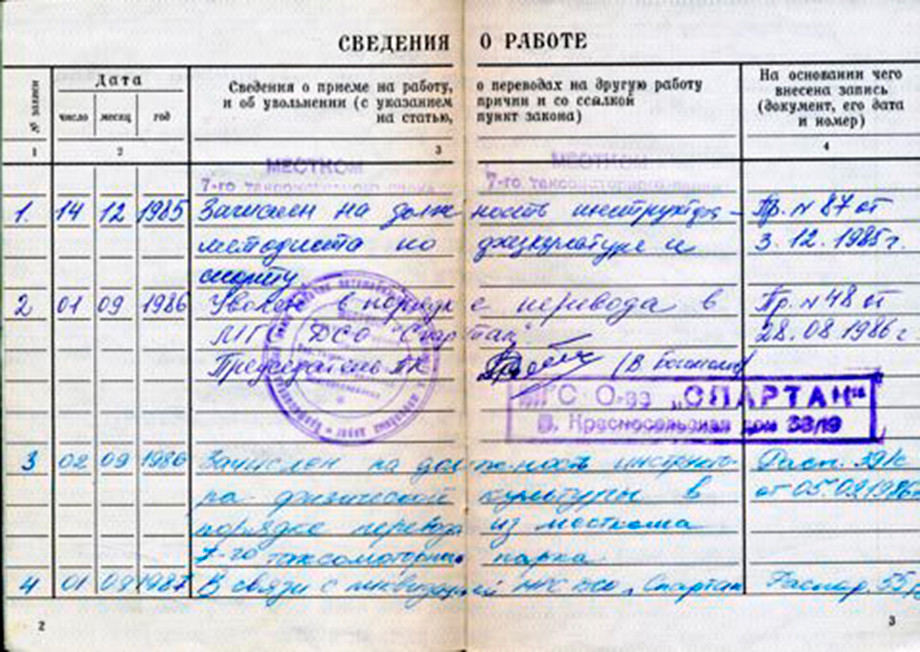 СВЕДЕНИЯ О РАБОТЕ
№ записи
Дата
число месяц год
Сведения о приеме на работу, о переводах на другую работу
и об увольнении (с указанием причин и со ссылкой
на статью, пункт закона)
На основании чего
внесена запись
(документ, его дата
и номер)
1 2 3 4
МЕСТКОМ МЕСТКОМ
7-го таксомоторного парка 7-го таксомоторного парка
1. 14 12 1985 Зачислен на должность инструктора- Пр. N 87 от
методиста по физкультуре и 3.12.1985г.
спорту
2 01 09 1986 Уволен в порядке перевода в Пр. N 48 от
МГС ДСО "Спартак" 28.08.1986г
Председатель МК (В.
МГС О-во „СПАРТАК"
В. Красносельская дом 38/19
3 02 09 1986 Зачислен на должность инструкто- Расп. 39/к
ра физической культуры в от 05.09.1986
порядке перевода из месткома
7-го таксомоторного парка
4 01 09 1987 В связи с ликвидацией МГС ДСО „Спартак Распор. 55/к
2 3